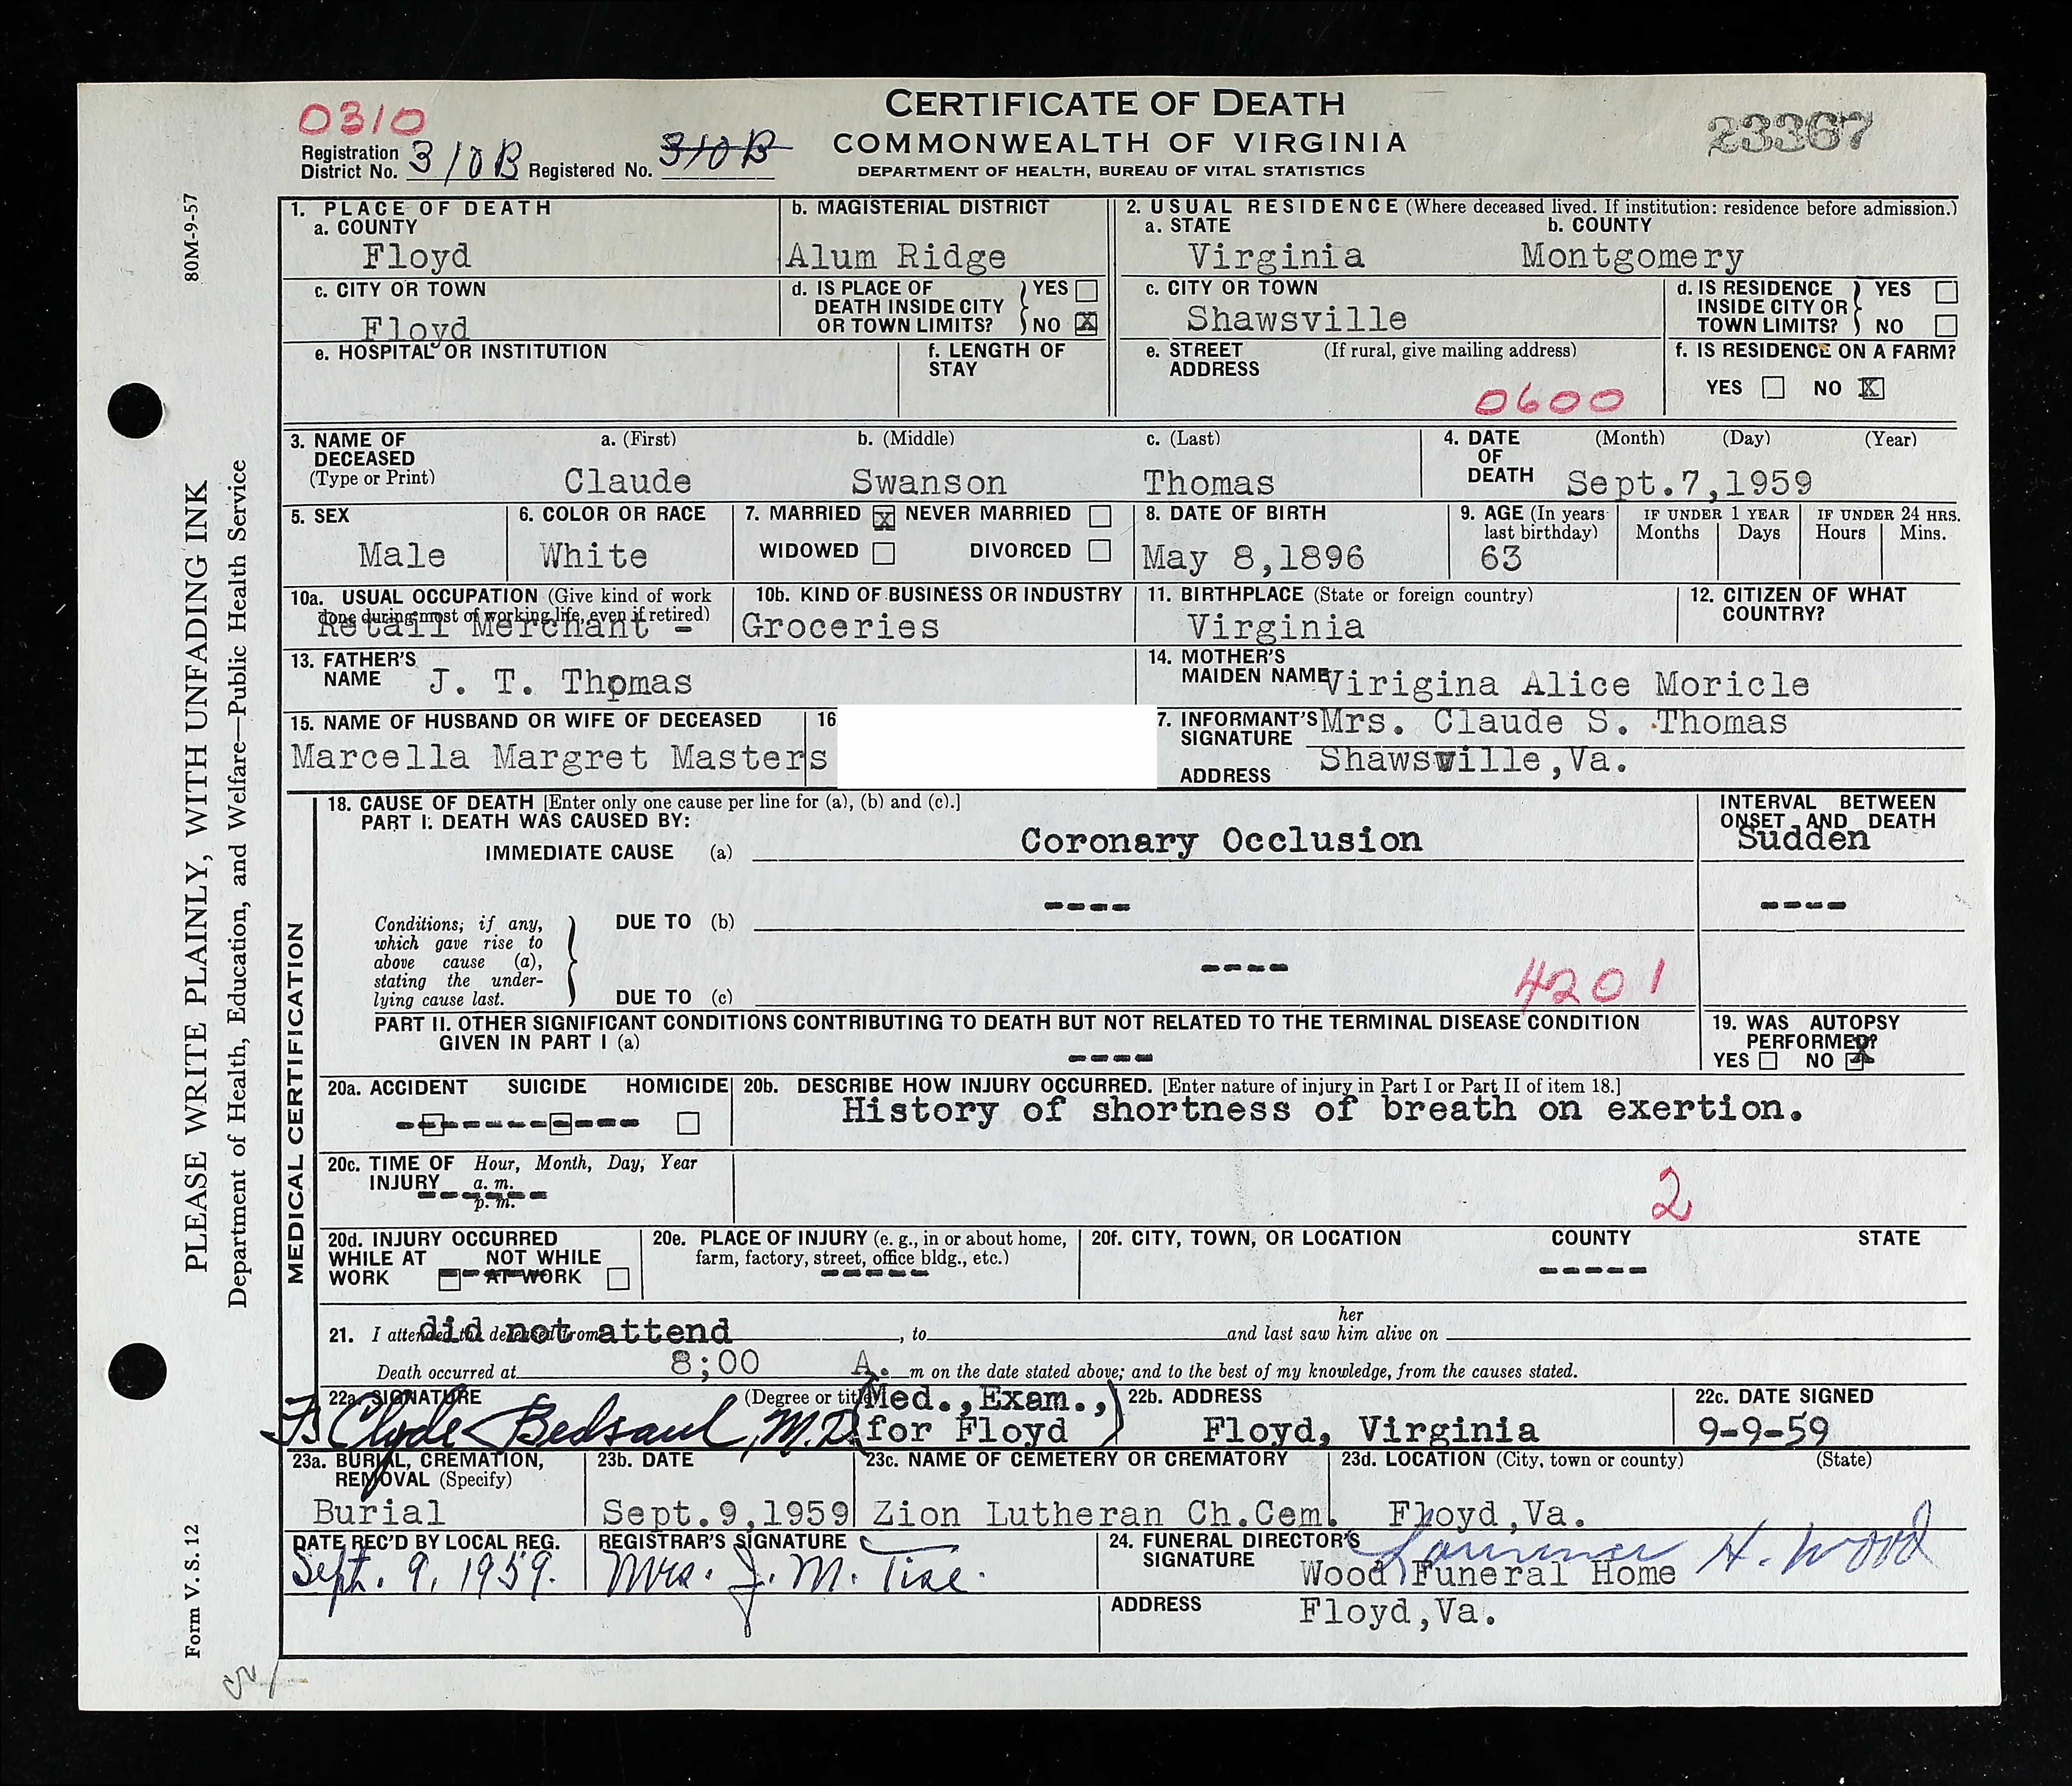 0310
CERTIFICATE OF DEATH
COMMONWEALTH OF VIRGINIA
DEPARTMENT OF HEALTH, BUREAU OF VITAL STATISTICS
23367
Registration District No. 310B Registered No. 310B
80M-9-57
PLEASE WRITE PLAINLY, WITH UNFADING INK
Department of Health, Education, and Welfare—Public Health Service
Form V. S. 12
1. PLACE OF DEATH
a. COUNTY
Floyd
b. MAGISTERIAL DISTRICT
Alum Ridge
2. USUAL RESIDENCE (Where deceased lived. If institution: residence before admission.)
a. STATE
Virginia
b. COUNTY
Montgomery
c. CITY OR TOWN
Floyd
d. IS PLACE OF DEATH INSIDE CITY OR TOWN LIMITS? YES NO X
c. CITY OR TOWN
Shawsville
d. IS RESIDENCE INSIDE CITY OR TOWN LIMITS? YES NO
e. HOSPITAL OR INSTITUTION
f. LENGTH OF STAY
e. STREET ADDRESS (If rural, give mailing address)
0600
f. IS RESIDENCE ON A FARM?
YES NO X
3. NAME OF DECEASED (Type or Print)
a. (First) b. (Middle) c. (Last)
Claude Swanson Thomas
4. DATE OF DEATH (Month) (Day) (Year)
Sept.7,1959
5. SEX
Male
6. COLOR OR RACE
White
7. MARRIED X NEVER MARRIED
WIDOWED DIVORCED
8. DATE OF BIRTH
May 8,1896
9. AGE (In years last birthday)
63
IF UNDER 1 YEAR
Months Days
IF UNDER 24 HRS.
Hours Mins.
10a. USUAL OCCUPATION (Give kind of work done during most of working life, even if retired)
Retail Merchant -
10b. KIND OF BUSINESS OR INDUSTRY
Groceries
11. BIRTHPLACE (State or foreign country)
Virginia
12. CITIZEN OF WHAT COUNTRY?
13. FATHER'S NAME J. T. Thomas
14. MOTHER'S MAIDEN NAME Virigina Alice Moricle
15. NAME OF HUSBAND OR WIFE OF DECEASED
Marcella Margret Masters
16
7. INFORMANT'S SIGNATURE Mrs. Claude S. Thomas
ADDRESS Shawsville,Va.
MEDICAL CERTIFICATION
18. CAUSE OF DEATH [Enter only one cause per line for (a), (b) and (c).]
PART I. DEATH WAS CAUSED BY:
IMMEDIATE CAUSE (a) Coronary Occlusion
INTERVAL BETWEEN ONSET AND DEATH
Sudden
Conditions; if any, which gave rise to above cause (a), stating the underlying cause last.
DUE TO (b) ----
----
DUE TO (c) ----
4201
PART II. OTHER SIGNIFICANT CONDITIONS CONTRIBUTING TO DEATH BUT NOT RELATED TO THE TERMINAL DISEASE CONDITION
GIVEN IN PART I (a)
----
19. WAS AUTOPSY PERFORMED?
YES NO X
20a. ACCIDENT SUICIDE HOMICIDE
20b. DESCRIBE HOW INJURY OCCURRED. [Enter nature of injury in Part I or Part II of item 18.]
History of shortness of breath on exertion.
20c. TIME OF INJURY Hour, Month, Day, Year
a. m.
p. m.
2
20d. INJURY OCCURRED
WHILE AT WORK NOT WHILE AT WORK
20e. PLACE OF INJURY (e. g., in or about home, farm, factory, street, office bldg., etc.)
-----
20f. CITY, TOWN, OR LOCATION COUNTY STATE
-----
21. I attended the deceased from did not attend, to and last saw her him alive on
Death occurred at 8;00 A. m on the date stated above; and to the best of my knowledge, from the causes stated.
22a. SIGNATURE (Degree or title)
Clyde Bedsaul, M.D. (Med.,Exam., for Floyd)
22b. ADDRESS
Floyd, Virginia
22c. DATE SIGNED
9-9-59
23a. BURIAL, CREMATION, REMOVAL (Specify)
Burial
23b. DATE
Sept.9,1959
23c. NAME OF CEMETERY OR CREMATORY
Zion Lutheran Ch.Cem.
23d. LOCATION (City, town or county) (State)
Floyd,Va.
DATE REC'D BY LOCAL REG.
Sept. 9, 1959.
REGISTRAR'S SIGNATURE
Mrs. J. M. Tise.
24. FUNERAL DIRECTOR'S SIGNATURE
H. Wood
Wood Funeral Home
ADDRESS Floyd,Va.